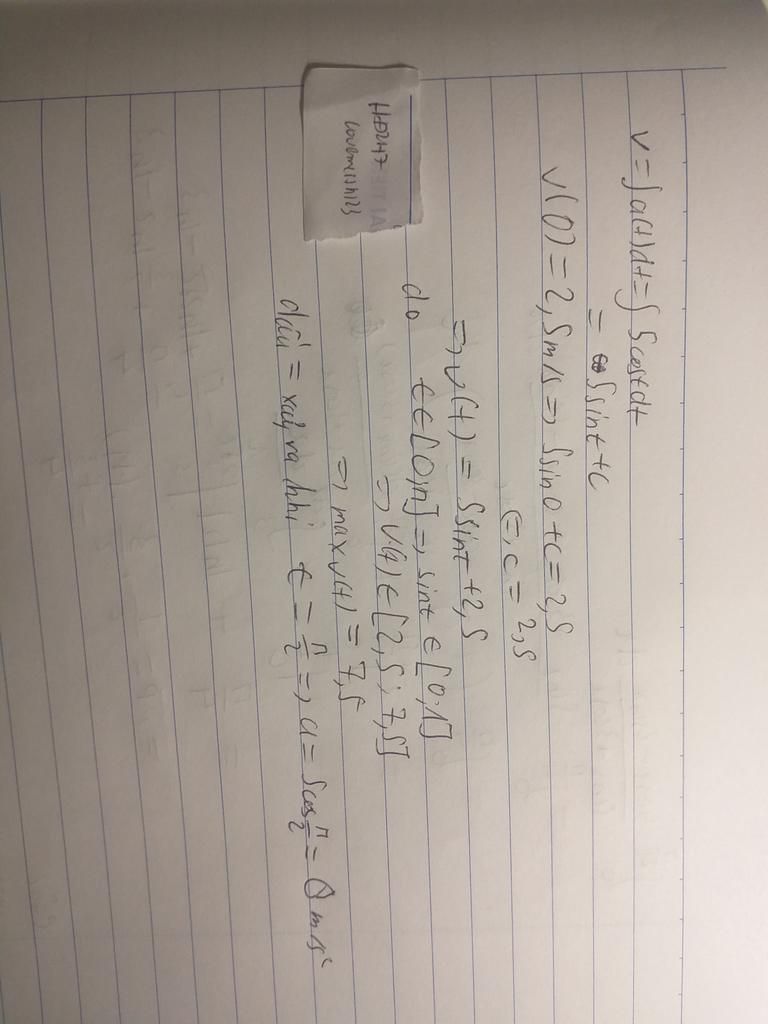 v = ∫ a(t)dt = ∫ 5costdt
= 5sint + c
v(0) = 2,5m/s => 5sin0 + c = 2,5
<=> c = 2,5
=> v(t) = 5sint + 2,5
do t ∈ [0;π] => sint ∈ [0;1]
=> v(t) ∈ [2,5 ; 7,5]
=> max v(t) = 7,5
dấu = xảy ra khi t = π/2 => a = 5cos π/2 = 0 m/s²